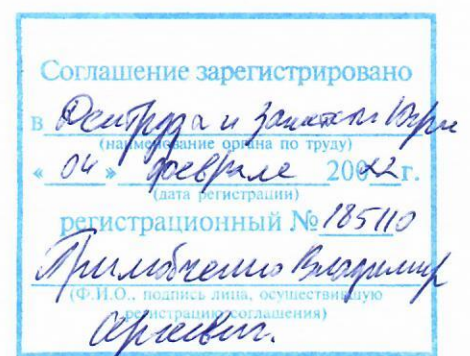 Соглашение зарегистрировано
в Дептруда и занятости Югры
(наименование органа по труду)
« 04 » феврале 2022 г.
(дата регистрации)
регистрационный № 185110
Владимир
(Ф.И.О., подпись лица, осуществившую
регистрацию соглашения)
Сергеевич.